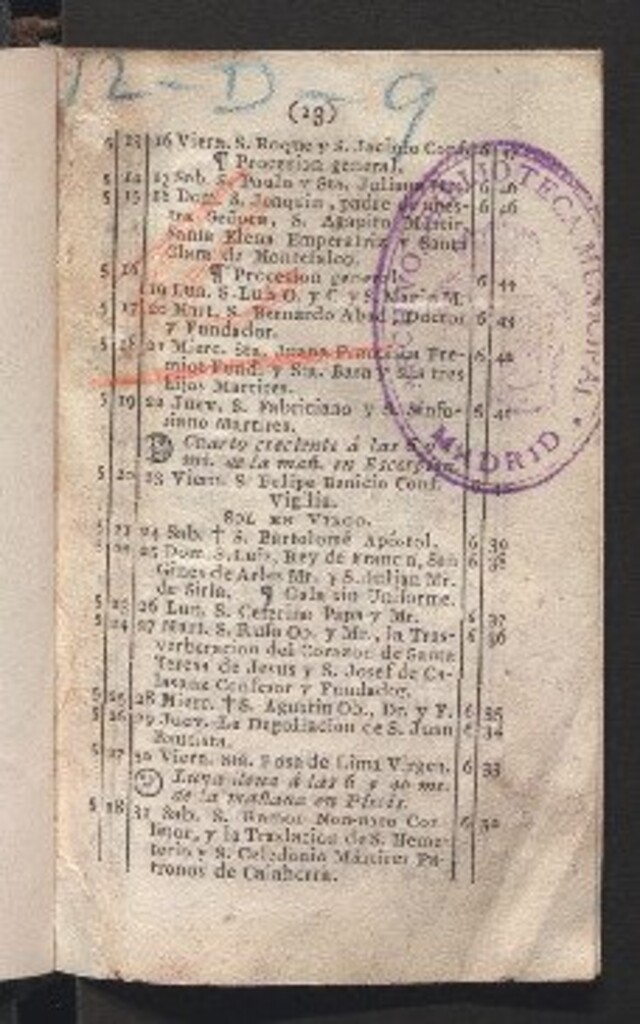 12-D-9
(23)
5 | 13 | 16 Viern. S. Roque y S. Jacinto Conf. 6
¶ Procesion general.
5 | 14 | 17 Sab. S. Paulo y Sta. Juliana 6 46
5 | 15 | 18 Dom. S. Joaquin, padre de nues- 6 46
tra Señora, S. Agapito Martir,
Santa Elena Emperatriz y Santa
Clara de Montefalco.
¶ Procesion general.
5 | 16 | 19 Lun. S. Luis O. y C. y S. M. 6 44
5 | 17 | 20 Mart. S. Bernardo Abad, Doctor 6 43
y Fundador.
5 | 18 | 21 Mierc. Sta. Juana Francisca Fre- 6 42
miot Fund. y Sta. Basa y sus tres
hijos Martires.
5 | 19 | 22 Juev. S. Fabriciano y S. Sinfo- 6 41
riano Martires.
Cuarto creciente á las
mi. de la mañ. en Escorpion.
5 | 20 | 23 Viern. S. Felipe Benicio Conf. 6
Vigilia.
SOL EN VIRGO.
5 | 21 | 24 Sab. † S. Bartolomé Apóstol. 6 39
5 | 22 | 25 Dom. S. Luis, Rey de Francia, San 6 38
Gines de Arles Mr. y S. Julian Mr.
de Siria. ¶ Gala sin Uniforme.
5 | 23 | 26 Lun. S. Ceferino Papa y Mr. 6 37
5 | 24 | 27 Mart. S. Rufo Ob. y Mr., la Tras- 6 36
verberacion del Corazon de Santa
Teresa de Jesus y S. Josef de Ca-
lasanz Confesor y Fundador.
5 | 25 | 28 Mierc. † S. Agustin Ob., Dr. y F. 6 35
5 | 26 | 29 Juev. La Degollacion de S. Juan 6 34
Bautista.
5 | 27 | 30 Viern. Sta. Rosa de Lima Virgen. 6 33
Luna llena á las 6 y 40 mi.
de la mañana en Piscis.
5 | 28 | 31 Sab. S. Ramon Nonnato Con- 6 32
fesor, y la Traslacion de S. Heme-
terio y S. Celedonio Mártires Pa-
tronos de Calahorra.
BIBLIOTECA MUNICIPAL
MADRID